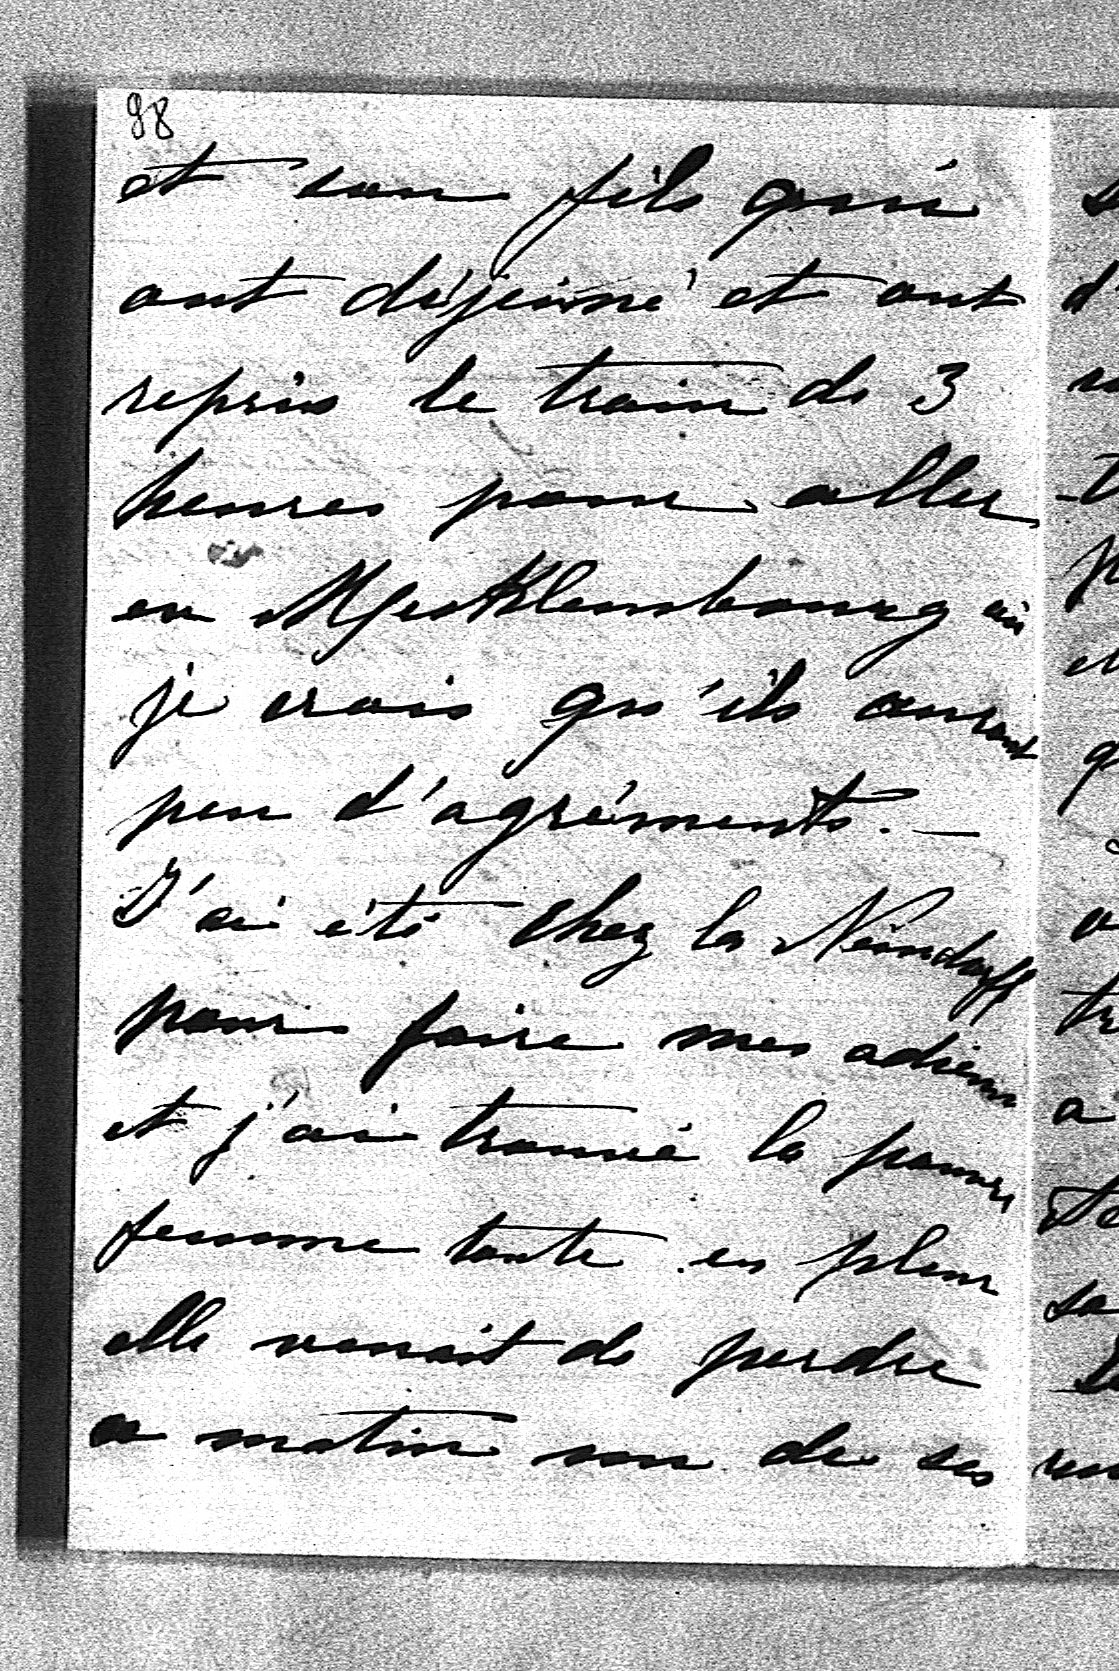 98
et son fils qui
ont déjeuné et ont
repris le train de 3
heures pour aller
en Mecklembourg où
je crois qu'ils auront
peu d'agréments. —
J'ai été chez la Neindorff
pour faire mes adieux
et j'ai trouvé la pauvre
femme toute en pleur
elle venait de perdre
ce matin un de ses